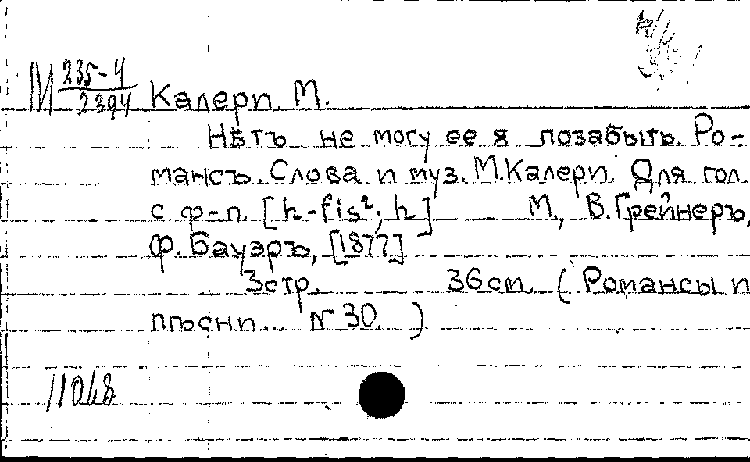 М 235-4
2394
Калери М.
Нѣтъ не могу ее я позабыть. Ро-
мансъ. Слова и муз. М. Калери. Для гол.
с ф-п. [h-fis²; h] М., В. Грейнеръ,
Ф. Бауэръ, [1877]
3 стр. 36 см. (Романсы и
пѣсни... № 30.)